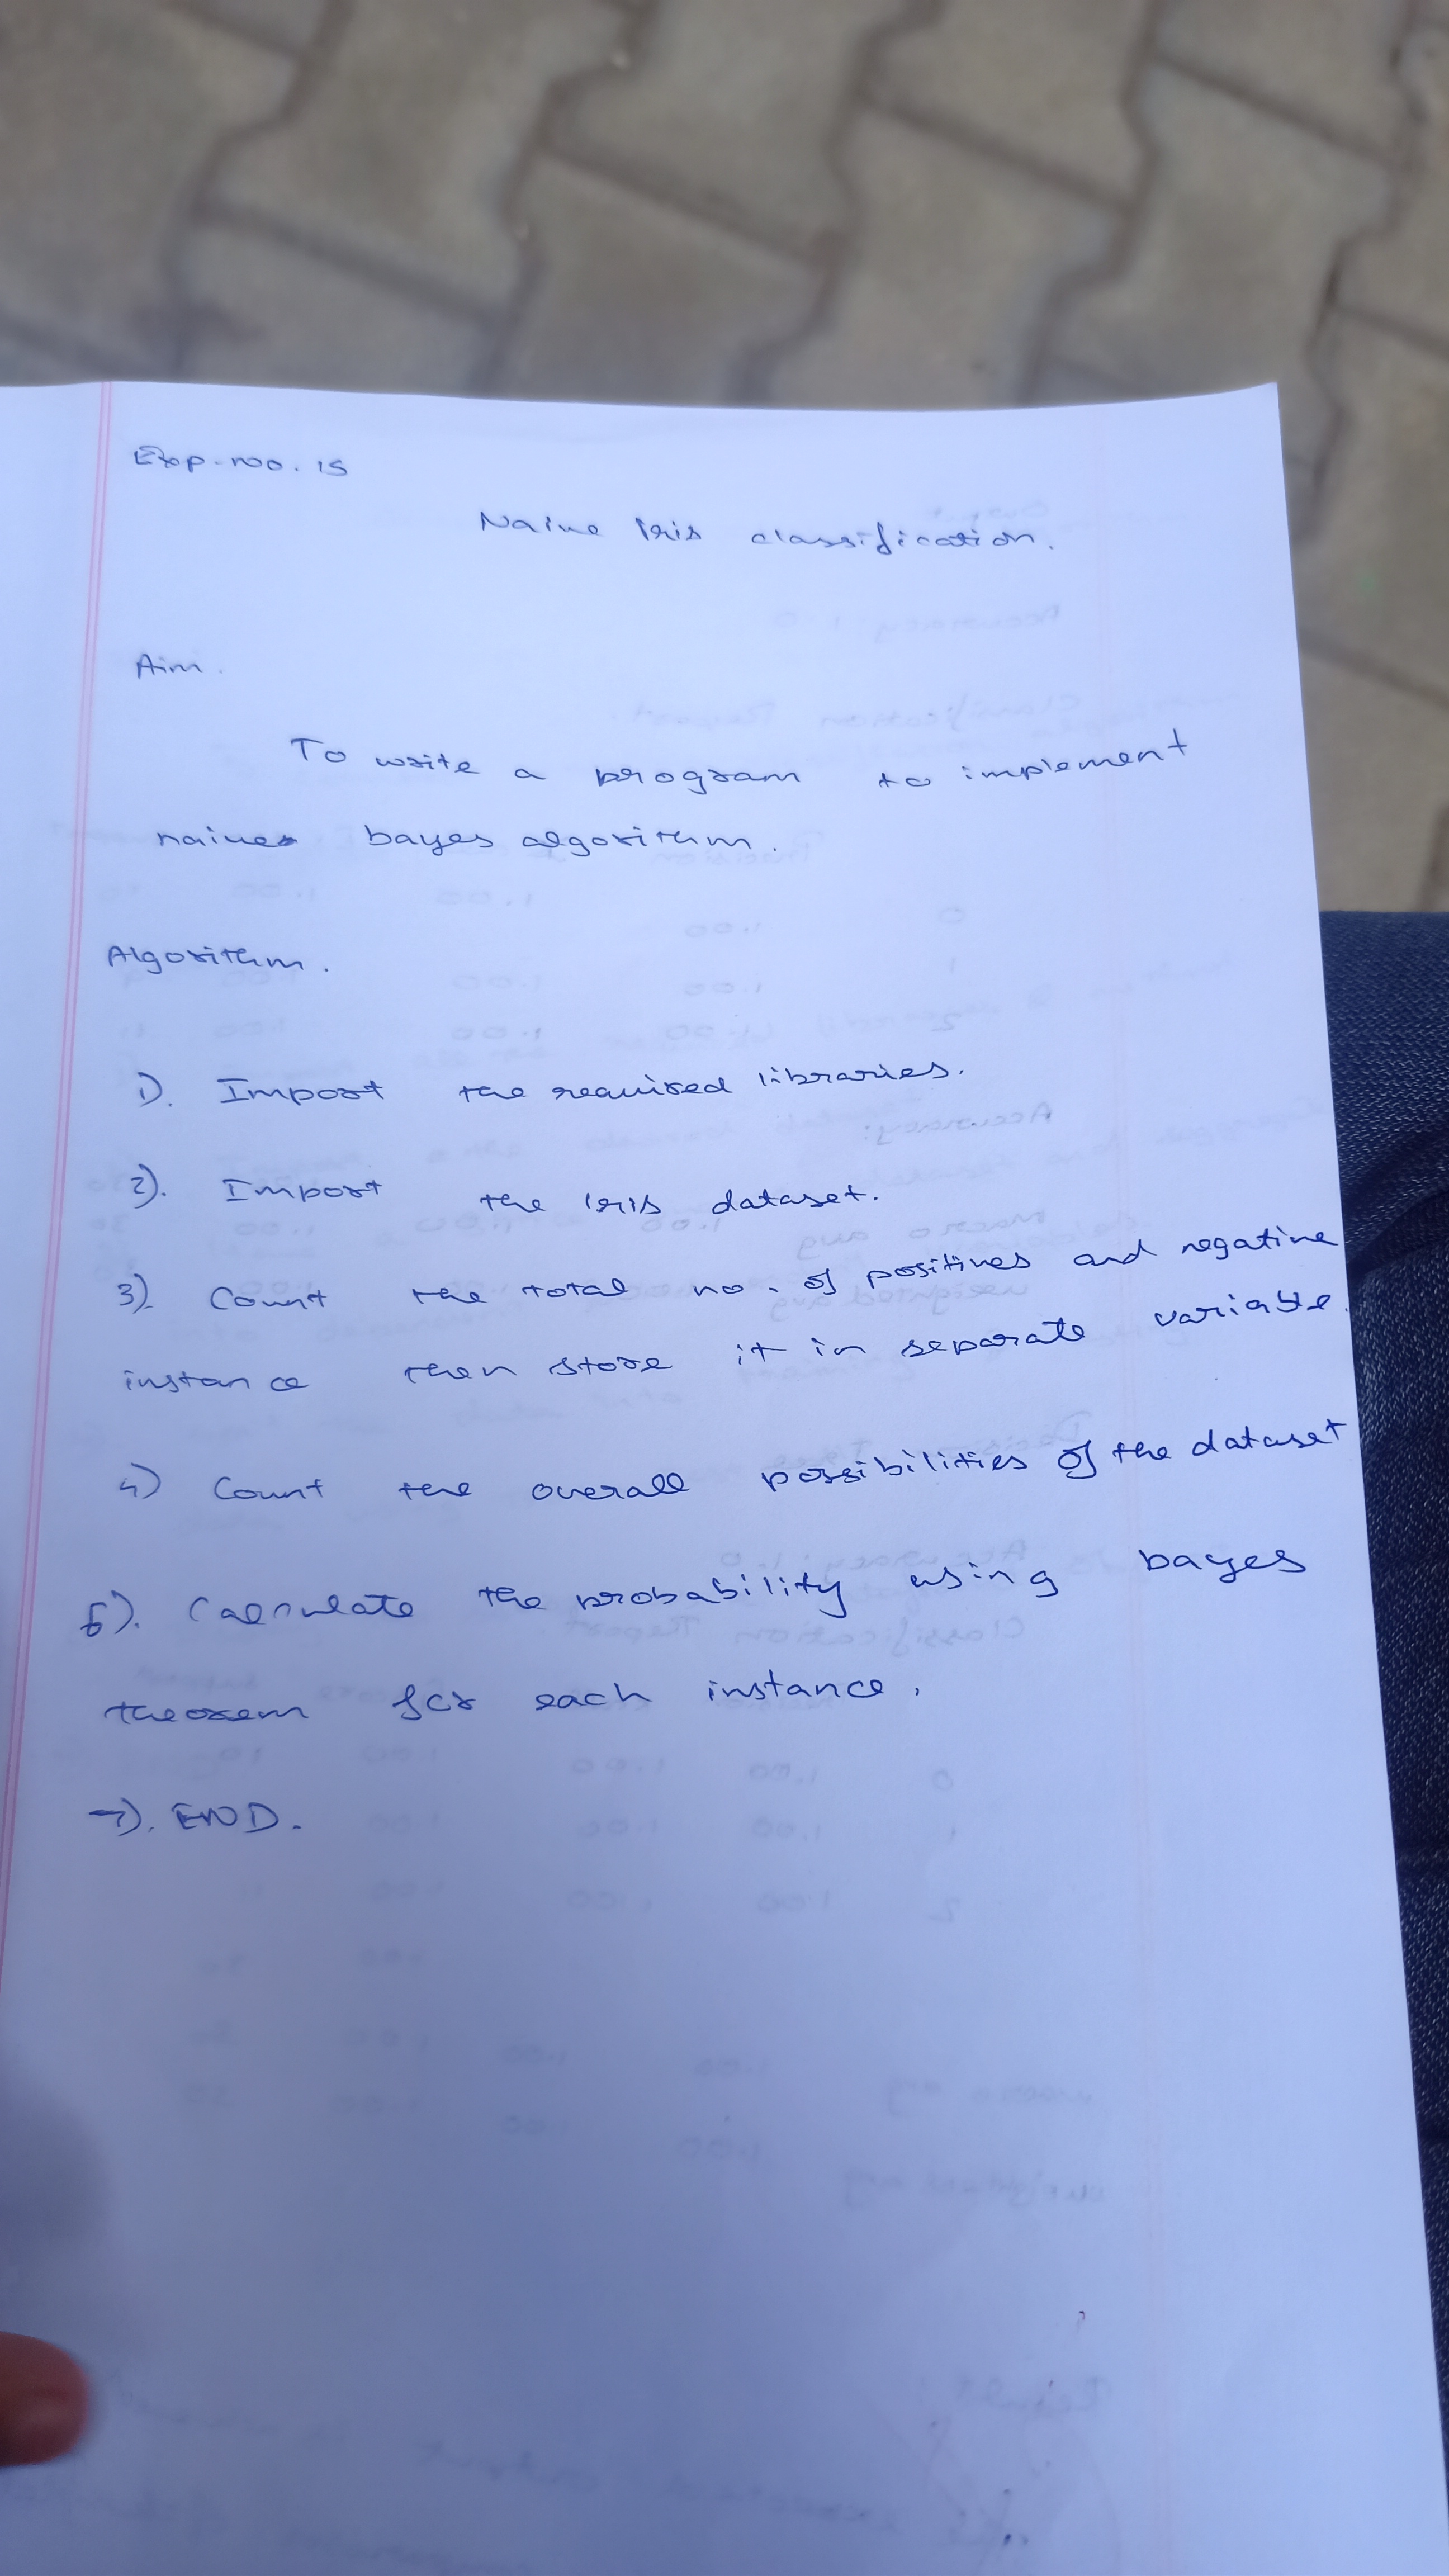 Exp-no. 15
Naive Iris classification.
Aim.
To write a program to implement
naives bayes algorithm.
Algorithm.
1). Import the required libraries.
2). Import the Iris dataset.
3). Count the total no. of positives and negative
instance then store it in separate variable.
4) Count the overall possibilities of the dataset
6). Calculate the probability using bayes
theorem for each instance.
7). END.